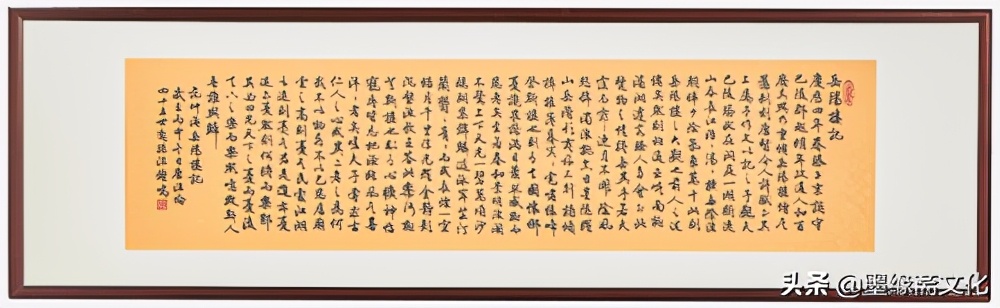 岳陽樓記
慶歷四年春滕子京謫守
巴陵郡越明年政通人和百
廢具興乃重修岳陽樓增其
舊制刻唐賢今人詩賦于其
上屬予作文以記之予觀夫
巴陵勝狀在洞庭一湖銜遠
山吞長江浩浩湯湯橫無際涯
朝暉夕陰氣象萬千此則
岳陽樓之大觀也前人之述
備矣然則北通巫峽南極
瀟湘遷客騷人多會於此
覽物之情得無異乎若夫
霪雨霏霏連月不開陰風
怒號濁浪排空日星隱曜
山岳潛形商旅不行檣傾
楫摧薄暮冥冥虎嘯猿啼
登斯樓也則有去國懷鄉
憂讒畏譏滿目蕭然感極而
悲者矣至若春和景明波瀾
不驚上下天光一碧萬頃沙
鷗翔集錦鱗游泳岸芷汀
蘭郁郁青青而或長煙一空
皓月千里浮光躍金靜影
沉璧漁歌互答此樂何極
登斯樓也則有心曠神怡
寵辱皆忘把酒臨風其喜
洋洋者矣嗟夫予嘗求古
仁人之心或異二者之為何
哉不以物喜不以己悲居廟
堂之高則憂其民處江湖
之遠則憂其君是進亦憂
退亦憂然則何時而樂耶
其必曰先天下之憂而憂後
天下之樂而樂歟噫微斯人
吾誰與歸
范仲淹岳陽樓記
丙申
四十五世
头条 @墨缘斋文化